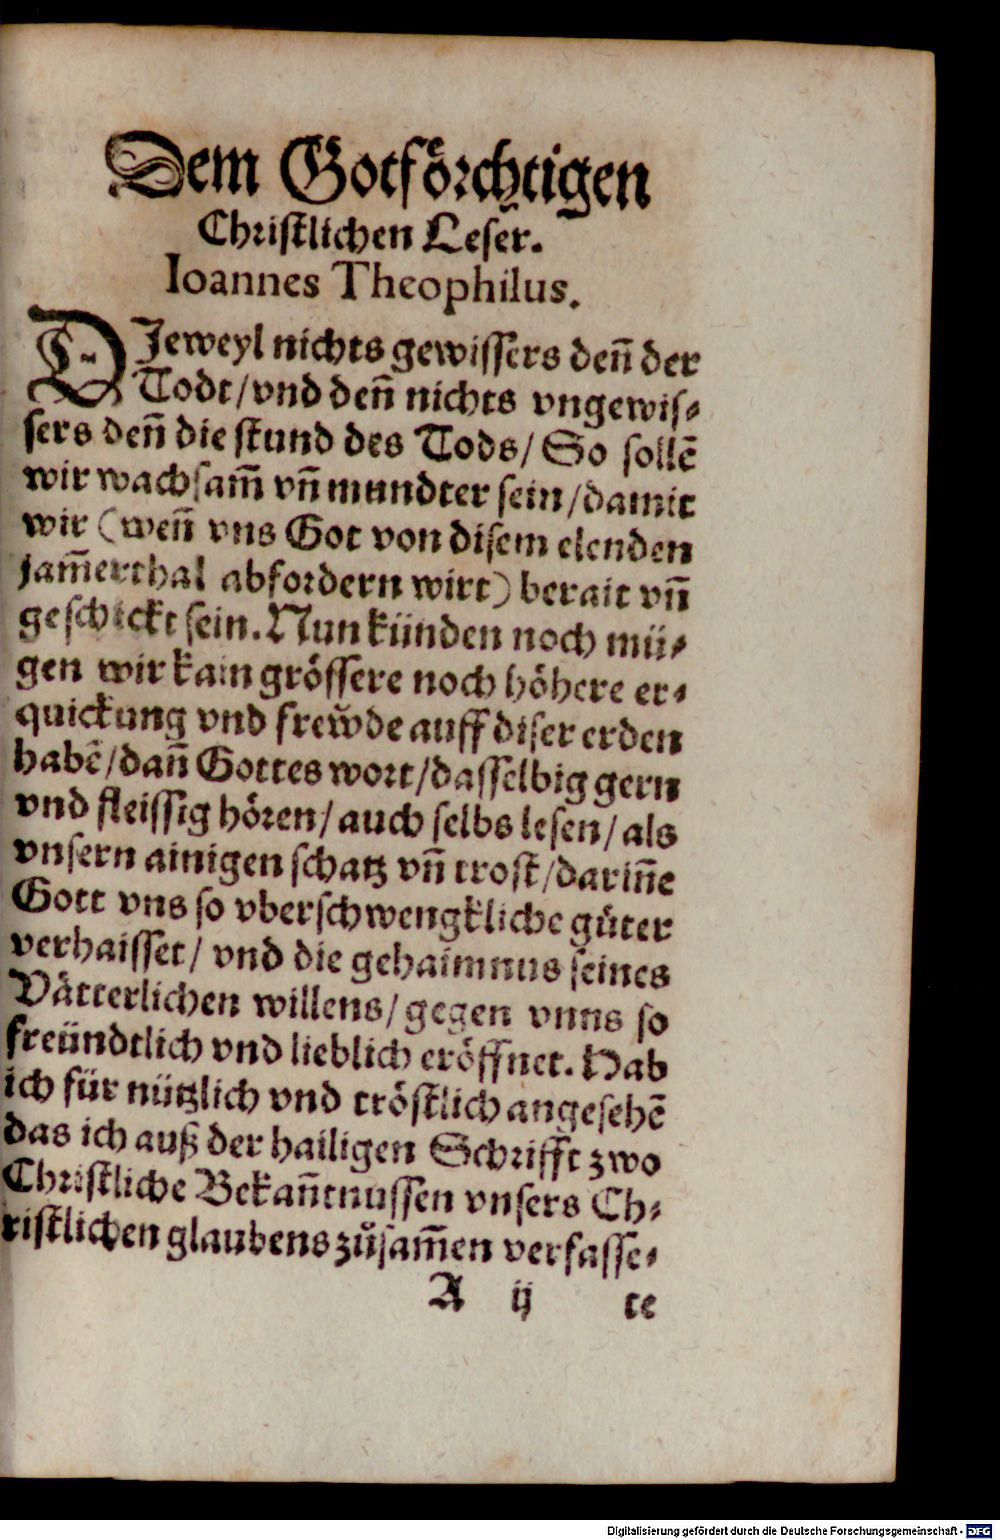 Dem Gotförchtigen
Christlichen Leser.
Ioannes Theophilus.
DJeweyl nichts gewissers den̄ der
Todt/vnd den̄ nichts vngewis⸗
sers den̄ die stund des Tods/So sollē
wir wachsam̄ vn̄ mundter sein/damit
wir (wen̄ vns Got von disem elenden
jam̄erthal abfordern wirt) berait vn̄
geschickt sein. Nun künden noch mü⸗
gen wir kain grössere noch höhere er⸗
quickung vnd frew̆de auff diser erden
habē/dan̄ Gottes wort/dasselbig gern
vnd fleissig hören/auch selbs lesen/als
vnsern ainigen schatz vn̄ trost/darin̄e
Gott vns so vberschwengkliche gůter
verhaisset/ vnd die gehaimnus seines
Vätterlichen willens/gegen vnns so
freündtlich vnd lieblich eröffnet. Hab
ich für nützlich vnd tröstlich angesehē
das ich auß der hailigen Schrifft zwo
Christliche Bekan̄tnussen vnsers Ch⸗
ristlichen glaubens zůsam̄en verfasse⸗
A ij te
Digitalisierung gefördert durch die Deutsche Forschungsgemeinschaft - DFG